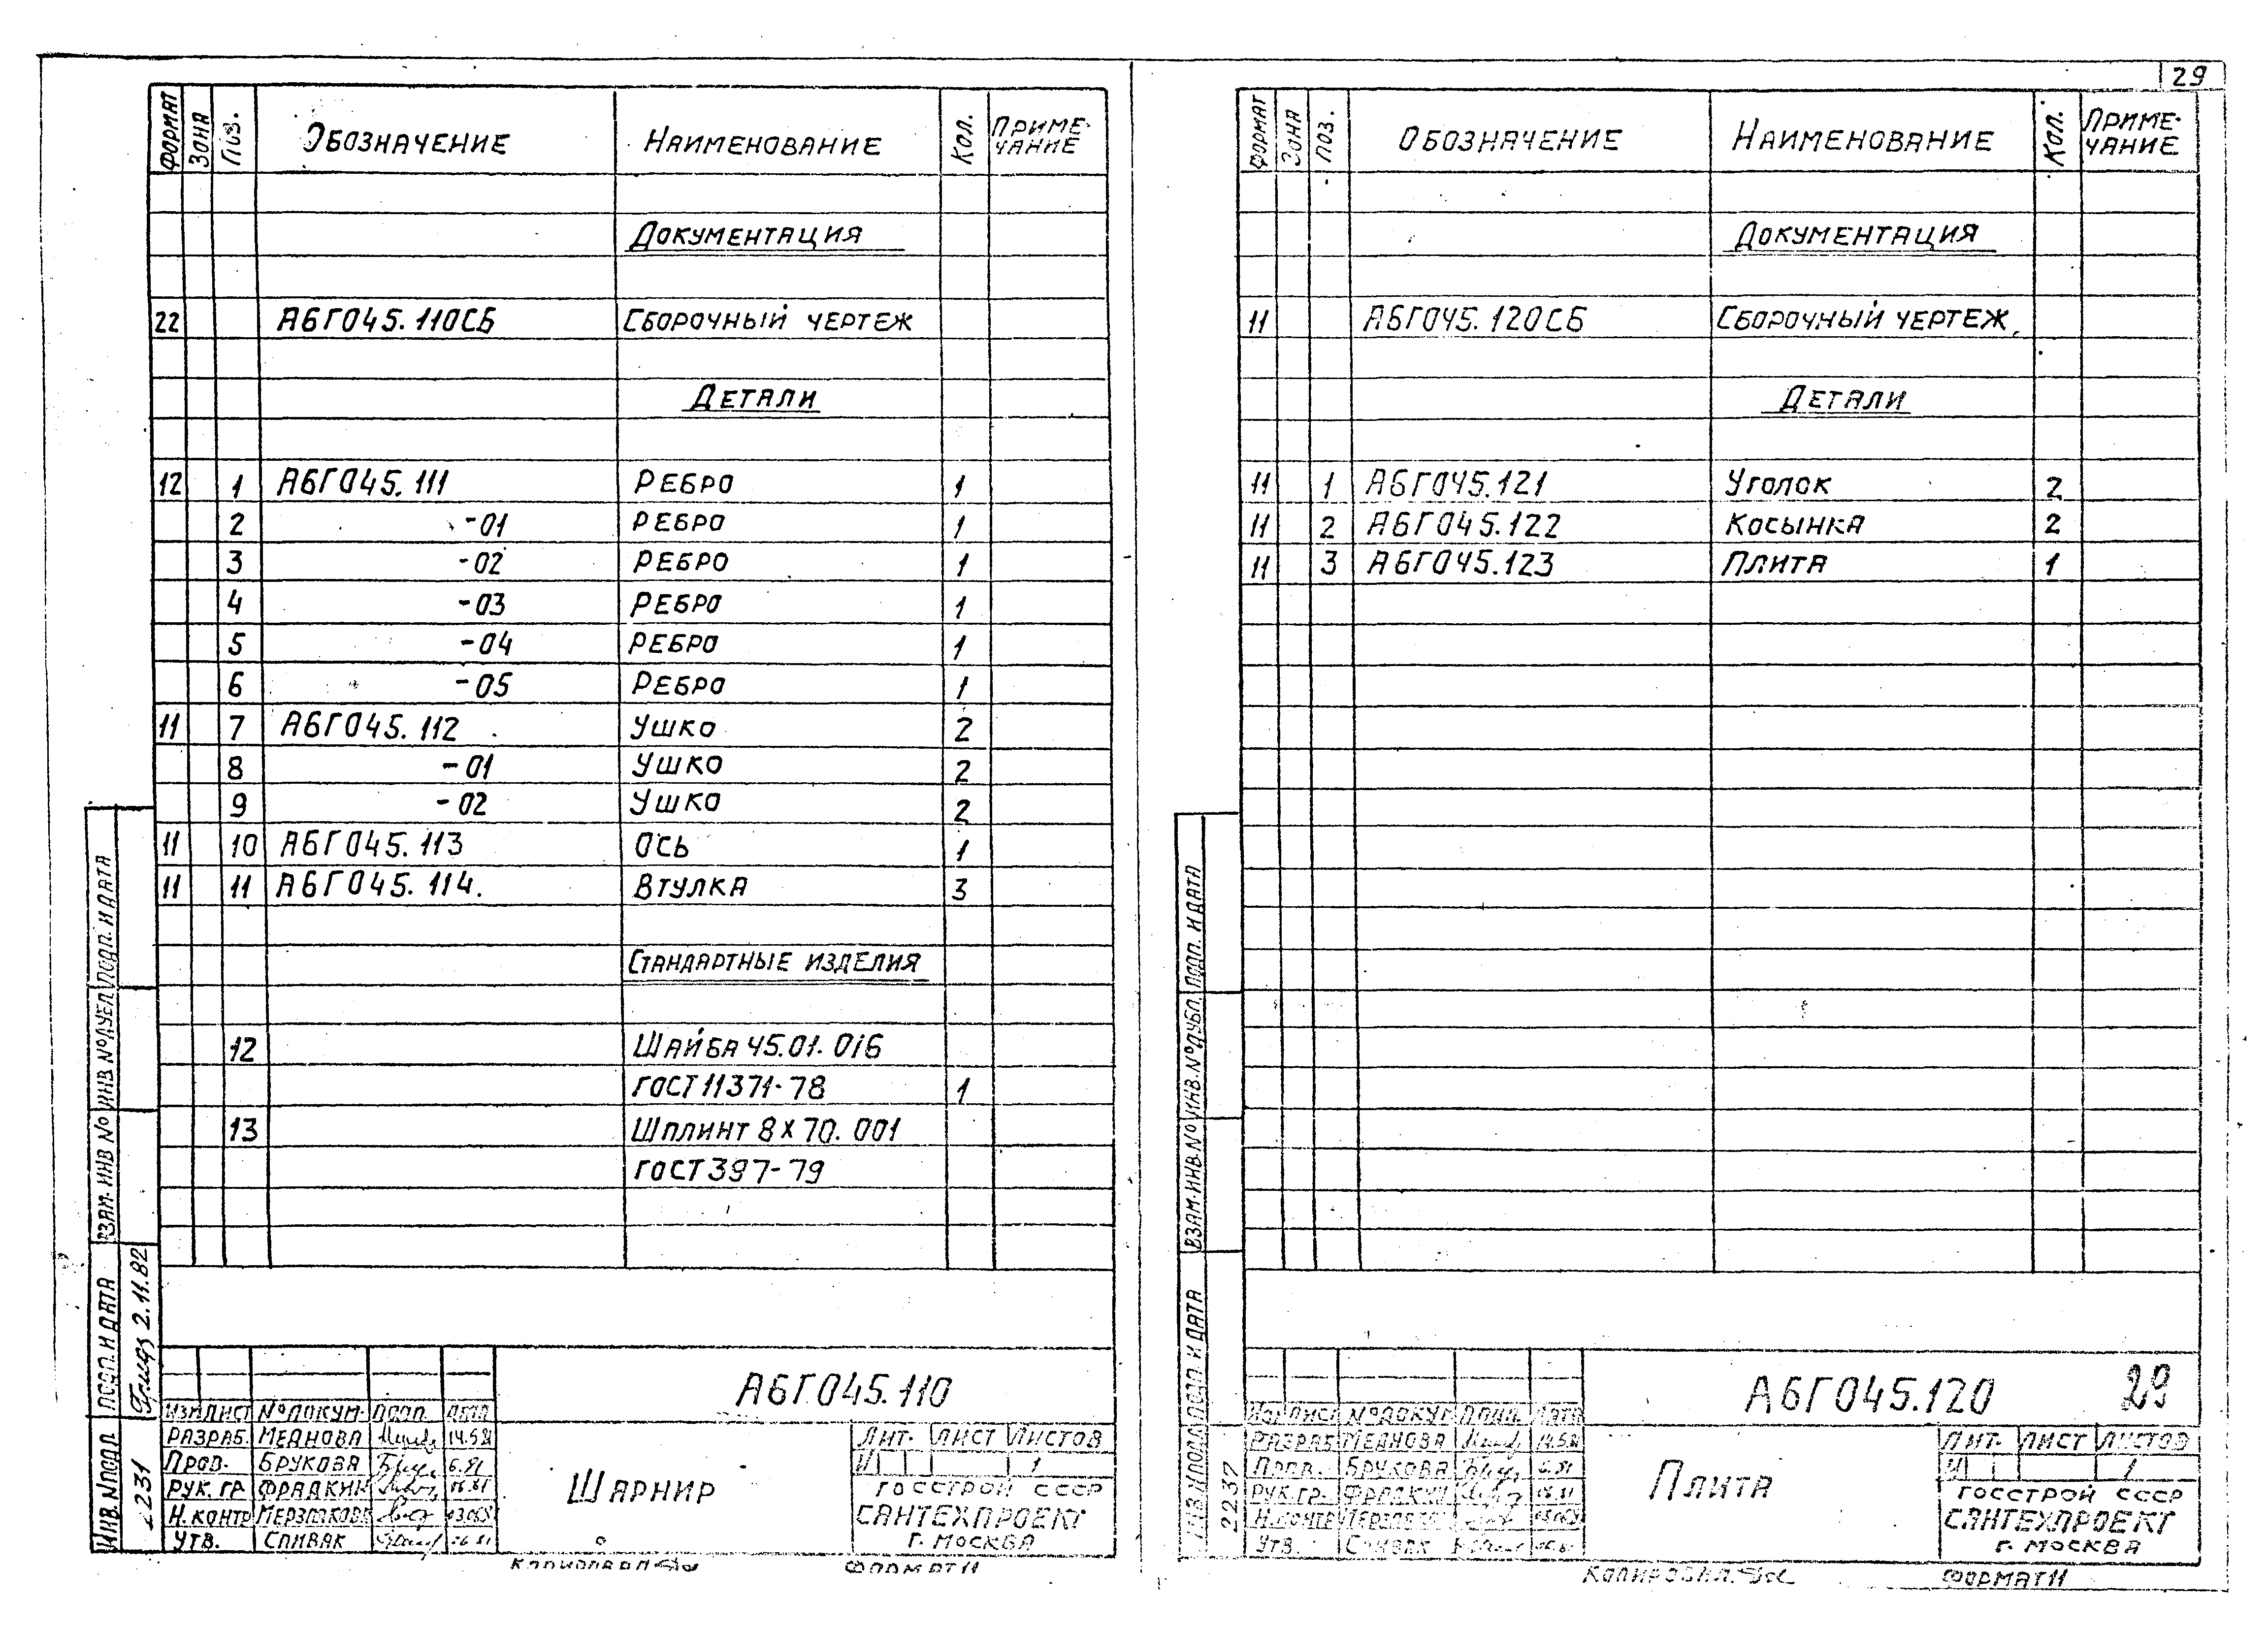 29
ФОРМАТ ЗОНА ПОЗ. ОБОЗНАЧЕНИЕ НАИМЕНОВАНИЕ КОЛ. ПРИМЕ-ЧАНИЕ
ДОКУМЕНТАЦИЯ
22 А6Г045.110СБ СБОРОЧНЫЙ ЧЕРТЕЖ
ДЕТАЛИ
12 1 А6Г045.111 РЕБРО 1
2 -01 РЕБРО 1
3 -02 РЕБРО 1
4 -03 РЕБРО 1
5 -04 РЕБРО 1
6 -05 РЕБРО 1
11 7 А6Г045.112 УШКО 2
8 -01 УШКО 2
9 -02 УШКО 2
11 10 А6Г045.113 ОСЬ 1
11 11 А6Г045.114. ВТУЛКА 3
СТАНДАРТНЫЕ ИЗДЕЛИЯ
12 ШАЙБА 45.01.016
ГОСТ 11371-78 1
13 ШПЛИНТ 8Х70.001
ГОСТ 397-79
ПОДП. И ДАТА
ИНВ №ДУБЛ
ВЗАМ. ИНВ №
ПОДП. И ДАТА 2.11.82
ИНВ. №ПОДЛ 2231
А6Г045.110
ИЗМ ЛИСТ №ДОКУМ. ПОДП. ДАТА
РАЗРАБ. МЕДНОВА 14.5.81
ПРОВ. БРУКОВА 6.81
РУК. ГР. ФРАДКИН 06.81
Н.КОНТР МЕРЗЛЯКОВА
УТВ. СПИВАК 06.81
ШАРНИР
ЛИТ. ЛИСТ ЛИСТОВ
И 1
ГОССТРОЙ СССР
САНТЕХПРОЕКТ
Г. МОСКВА
КОПИРОВАЛ ФОРМАТ 11
ФОРМАТ ЗОНА ПОЗ. ОБОЗНАЧЕНИЕ НАИМЕНОВАНИЕ КОЛ. ПРИМЕ-ЧАНИЕ
ДОКУМЕНТАЦИЯ
11 А6Г045.120СБ СБОРОЧНЫЙ ЧЕРТЕЖ
ДЕТАЛИ
11 1 А6Г045.121 УГОЛОК 2
11 2 А6Г045.122 КОСЫНКА 2
11 3 А6Г045.123 ПЛИТА 1
ПОДП. И ДАТА
ИНВ.№ДУБЛ.
ВЗАМ.ИНВ.№
ПОДП. И ДАТА
ИНВ.№ПОДЛ 2237
А6Г045.120 29
ИЗМ ЛИСТ №ДОКУМ ПОДП. ДАТА
РАЗРАБ МЕДНОВА 14.5.81
ПРОВ. БРУКОВА 6.81
РУК.ГР. ФРАДКИН 06.81
Н.КОНТР МЕРЗЛЯКОВА
УТВ. СПИВАК 06.81
ПЛИТА
ЛИТ. ЛИСТ ЛИСТОВ
И 1
ГОССТРОЙ СССР
САНТЕХПРОЕКТ
Г. МОСКВА
КОПИРОВАЛ. ФОРМАТ 11